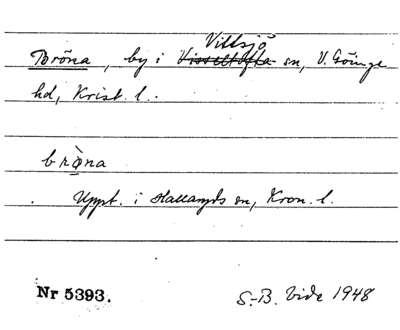 Vittsjö
Bröna, by i Visseltofta sn, V. Göinge
hd, Krist. l.
bròna
Uppt. i Hallaryds sn, Kron. l.
Nr 5393.
S.-B. Vide 1948